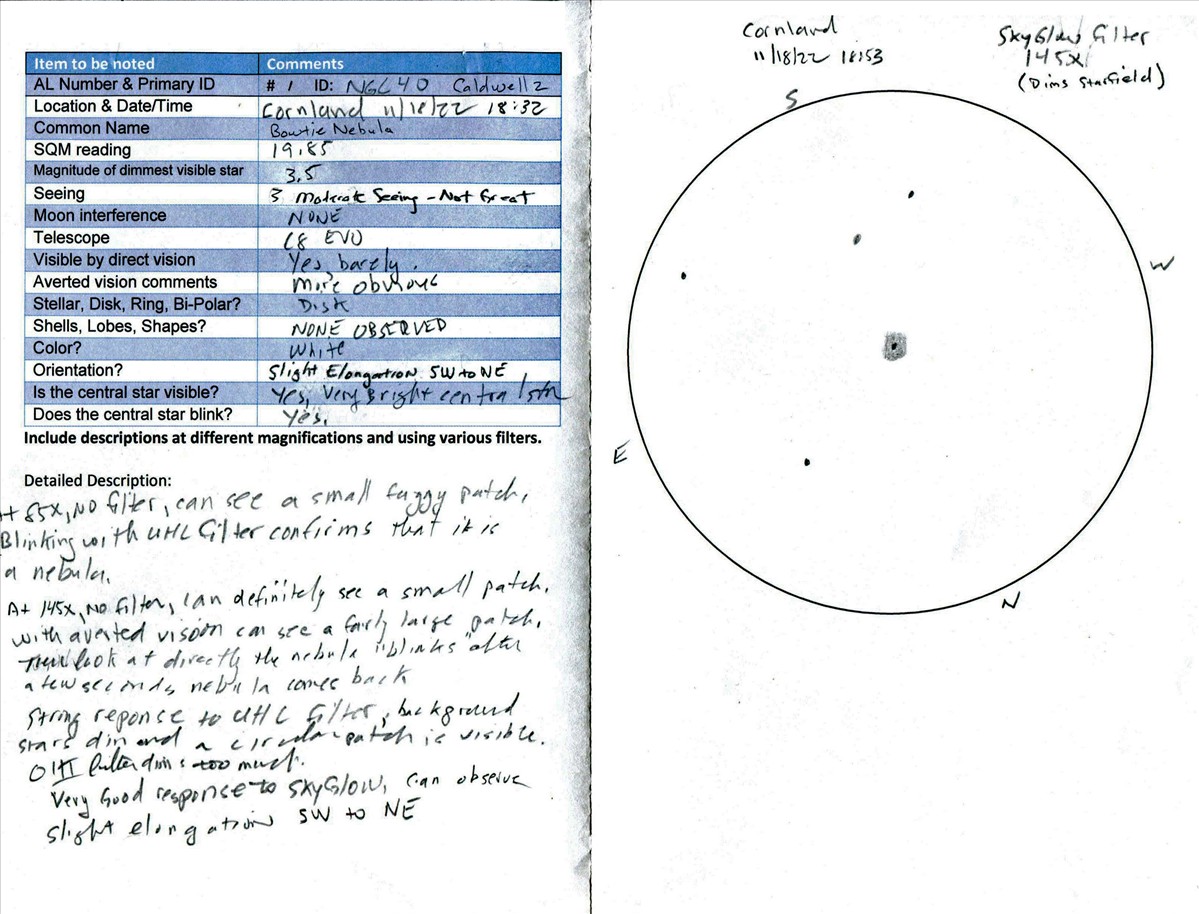 Item to be noted Comments
AL Number & Primary ID # 1 ID: NGC 40 Caldwell 2
Location & Date/Time Cornland 11/18/22 18:32
Common Name Bowtie Nebula
SQM reading 19.85
Magnitude of dimmest visible star 3.5
Seeing 3 Moderate Seeing - Not Great
Moon interference NONE
Telescope C8 EVO
Visible by direct vision Yes, barely.
Averted vision comments More obvious
Stellar, Disk, Ring, Bi-Polar? Disk
Shells, Lobes, Shapes? NONE OBSERVED
Color? White
Orientation? Slight Elongation SW to NE
Is the central star visible? Yes, Very Bright central star
Does the central star blink? Yes.
Include descriptions at different magnifications and using various filters.
Detailed Description:
At 85X, NO filter, can see a small fuzzy patch,
Blinking with UHC filter confirms that it is
a nebula.
At 145X, NO filter, can definitely see a small patch,
with averted vision can see a fairly large patch,
then look at directly the nebula "blinks" after
a few seconds nebula comes back
Strong reponse to UHC filter, background
stars dim and a circular patch is visible.
OIII filter dims too much.
Very Good response to SKYGLOW, can observe
slight elongation SW to NE
Cornland
11/18/22 18:53
SkyGlow filter
145X
(Dims Starfield)
S
W
E
N